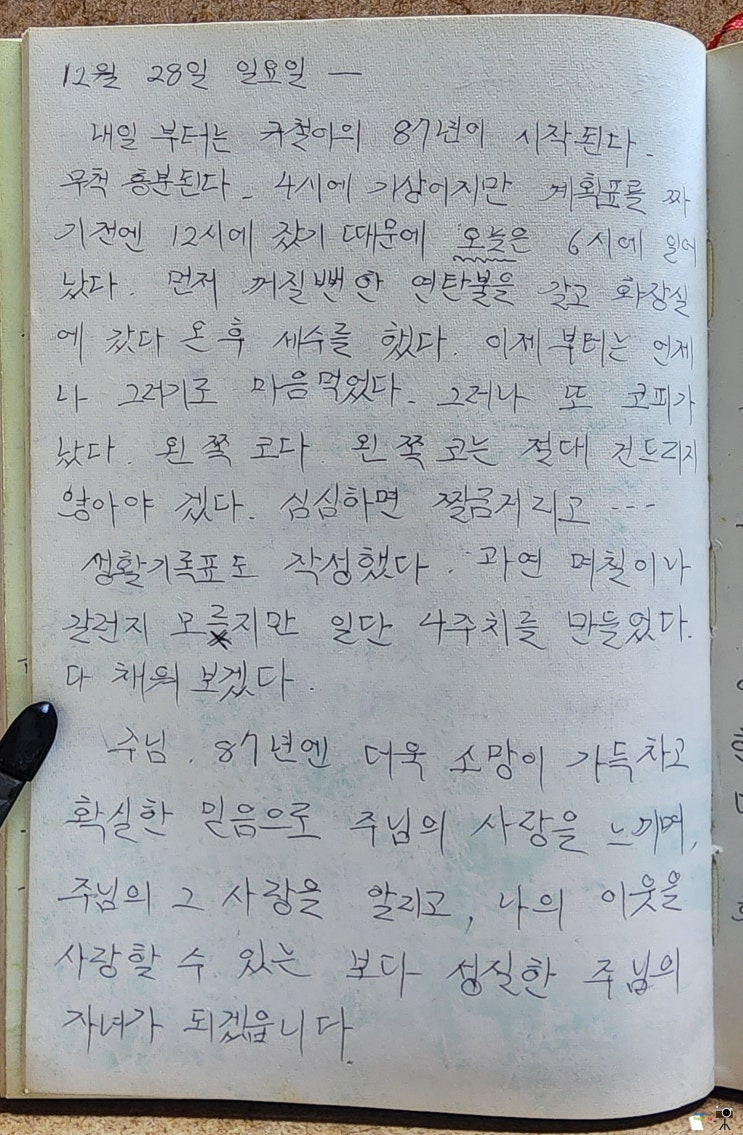 12월 28일 일요일 —
내일 부터는 규철이의 87년이 시작된다.
무척 흥분된다. 4시에 기상이지만 계획표를 짜
기전엔 12시에 잤기 때문에 오늘은 6시에 일어
났다. 먼저 꺼질뻔 한 연탄불을 갈고 화장실
에 갔다 온 후 세수를 했다. 이제 부터는 언제
나 그러기로 마음먹었다. 그러나 또 코피가
났다. 왼 쪽 코다. 왼 쪽 코는 절대 건드리지
않아야 겠다. 심심하면 찔끔거리고 ---
생활기록표도 작성했다. 과연 며칠이나
갈런지 모르지만 일단 4주치를 만들었다.
다 채워 보겠다.
주님. 87년엔 더욱 소망이 가득차고
확실한 믿음으로 주님의 사랑을 느끼며,
주님의 그 사랑을 알리고, 나의 이웃을
사랑할 수 있는 보다 성실한 주님의
자녀가 되겠읍니다.